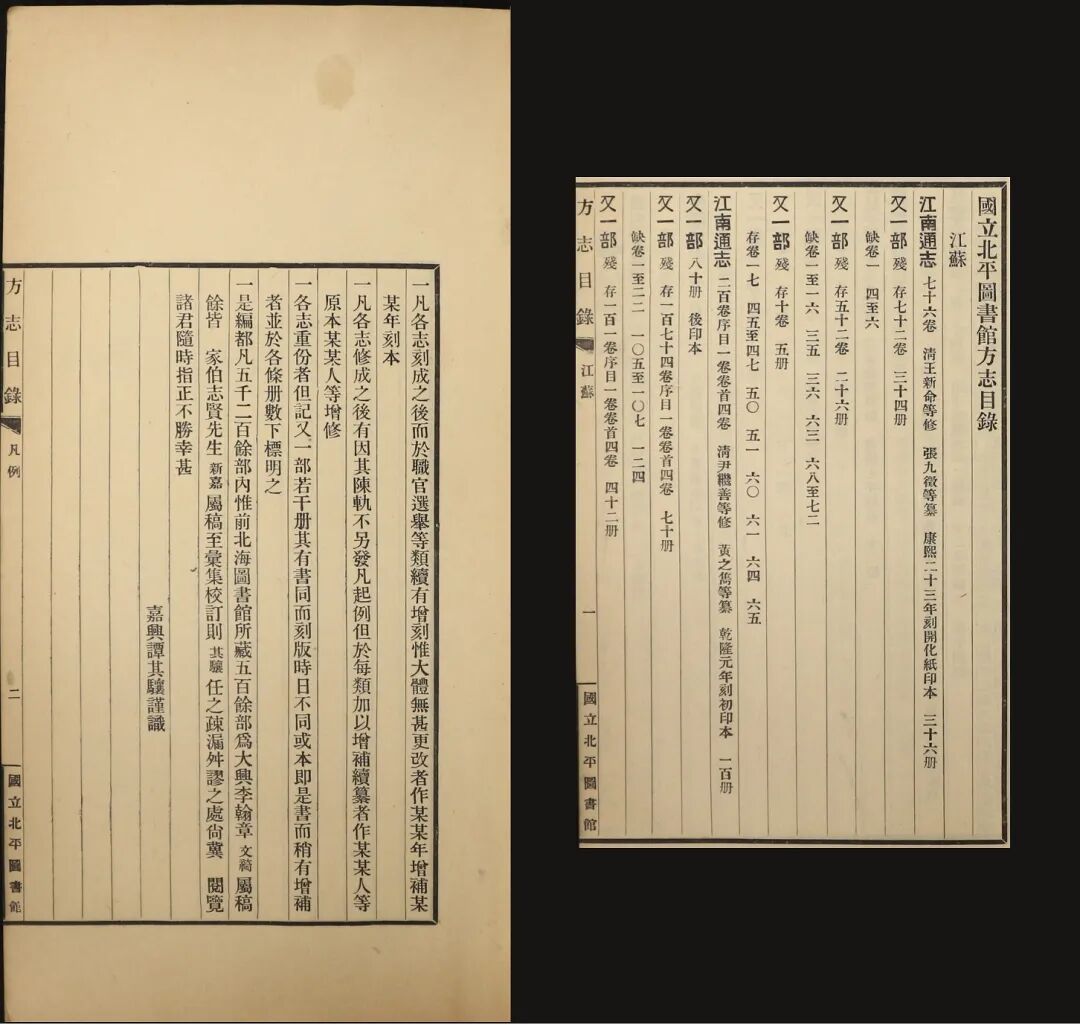 一凡各志刻成之後而於職官選舉等類續有增刻惟大體無甚更改者作某某年增補某
某年刻本
一凡各志修成之後有因其陳軌不另發凡起例但於每類加以增補續纂者作某某人等
原本某某人等增修
一各志重份者但記又一部若干册其有書同而刻版時日不同或本即是書而稍有增補
者並於各條册數下標明之
一是編都凡五千二百餘部內惟前北海圖書館所藏五百餘部爲大興李翰章 文䄎 屬稿
餘皆 家伯志賢先生 新嘉 屬稿至彙集校訂則 其驤 任之疎漏舛謬之處尙冀 閱覽
諸君隨時指正不勝幸甚
嘉興譚其驤謹識
方志目錄 凡例 二 國立北平圖書館
國立北平圖書館方志目錄
江蘇
江南通志 七十六卷 淸王新命等修 張九徵等纂 康熙二十三年刻開化紙印本 三十六册
又一部 殘 存七十二卷 三十四册
缺卷一 四至六
又一部 殘 存五十二卷 二十六册
缺卷一至一六 三五 三六 六三 六八至七二
又一部 殘 存十卷 五册
存卷一七 四五至四七 五〇 五一 六〇 六一 六四 六五
江南通志 二百卷序目一卷卷首四卷 淸尹繼善等修 黃之雋等纂 乾隆元年刻初印本 一百册
又一部 八十册 後印本
又一部 殘 存一百七十四卷序目一卷卷首四卷 七十册
缺卷一至二二 一〇五至一〇七 一二四
又一部 殘 存一百一卷序目一卷卷首四卷 四十二册
方志目錄 江蘇 一 國立北平圖書館